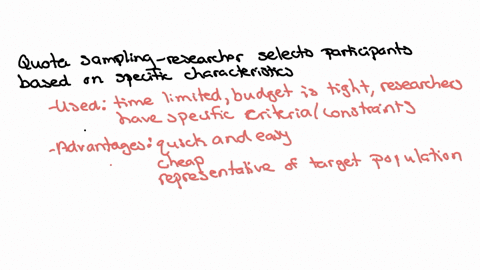 Quota sampling-researcher selects participants
based on specific characteristics
-Used: time limited, budget is tight, researchers
have specific criteria/constraints
-Advantages: quick and easy
cheap
representative of target population